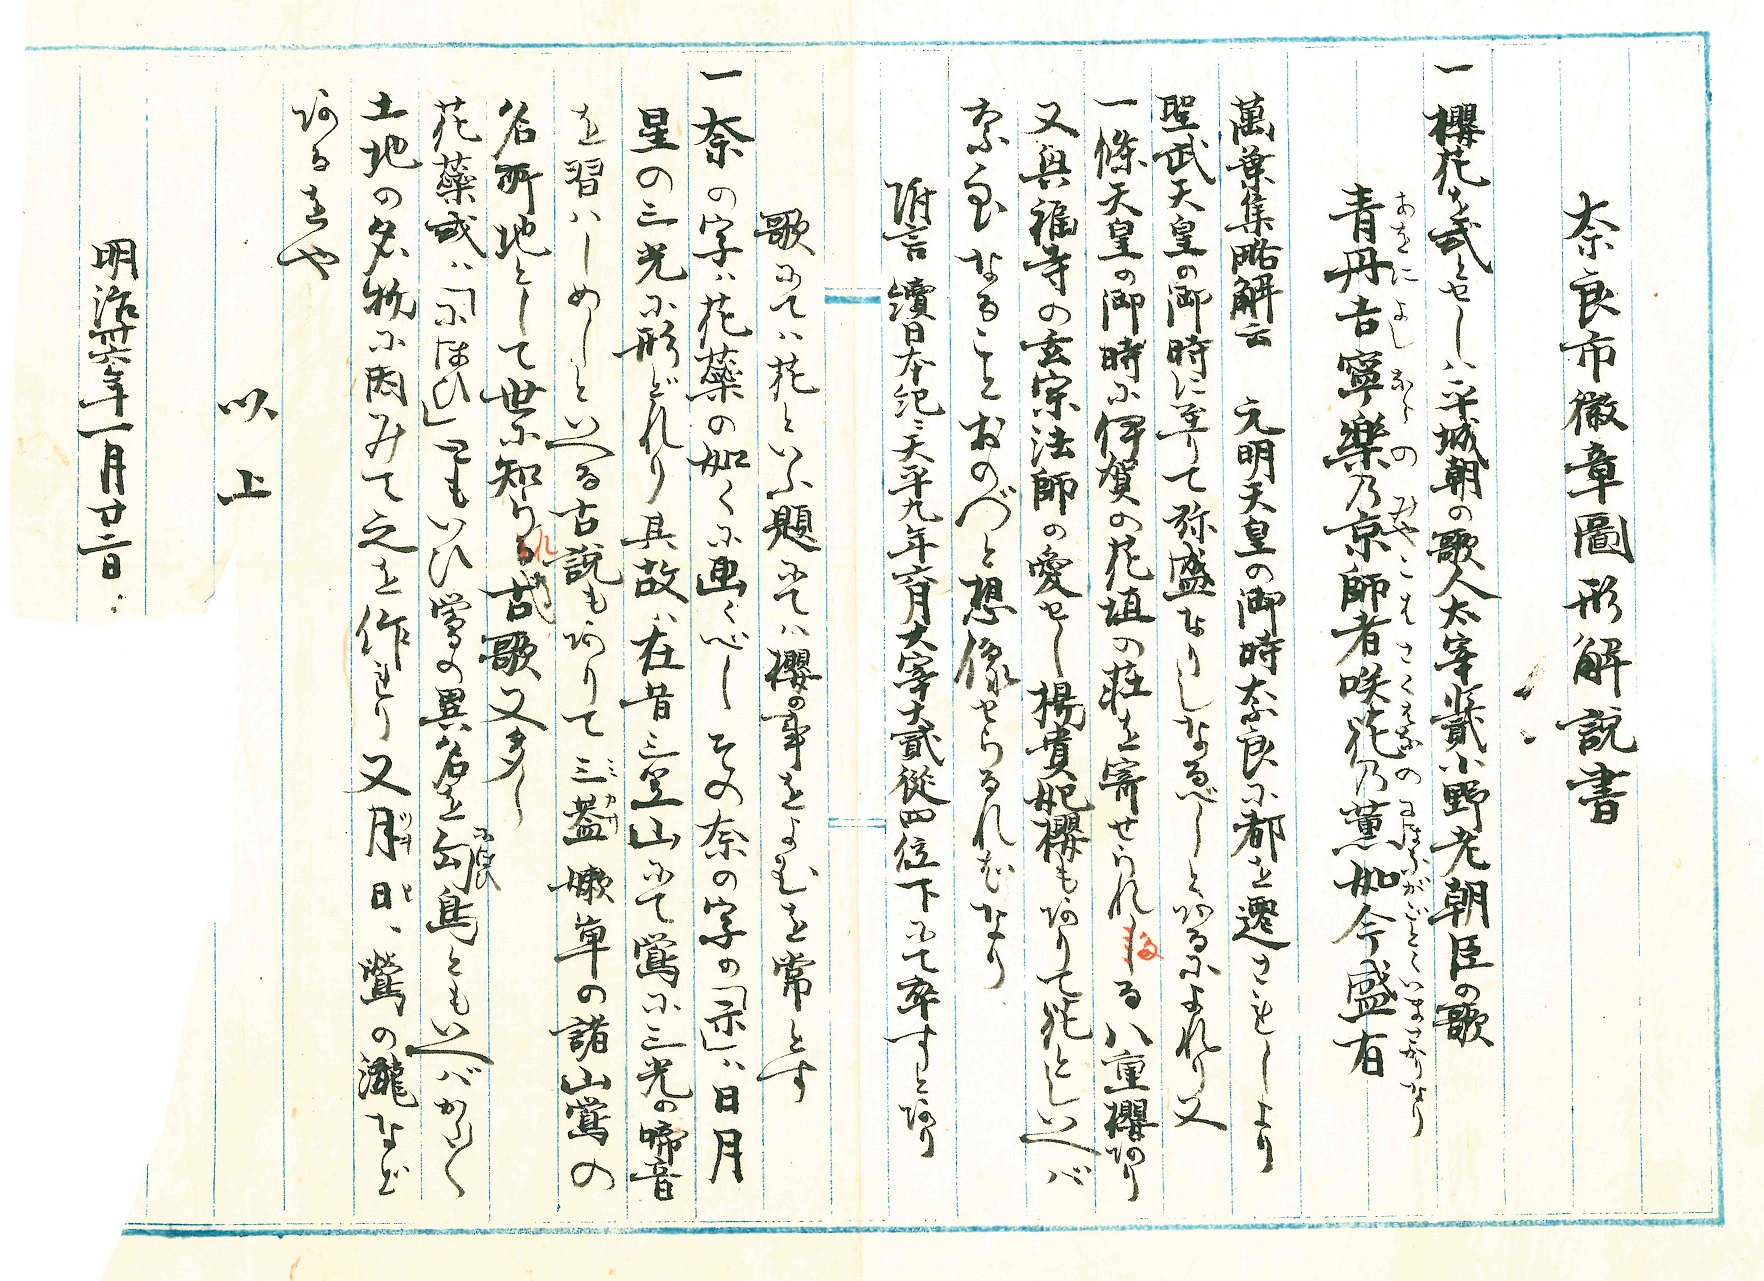 奈良市徽章圖形解説書
一櫻花を武とせしハ平城朝の歌人太宰少貳小野老朝臣の歌
あをによし ならの みやこは さくはなの にほふがごとくいまさかりなり
青丹吉寧樂乃京師者咲花乃薫如今盛有
萬葉集略解云 元明天皇の御時奈良に都を遷されしより
聖武天皇の御時に至りて弥盛なりしなるべしとあるによれり又
一條天皇の御時に伊賀の花垣の莊を寄せられしる八重櫻あり
又興福寺の玄宗法師の愛せし楊貴妃櫻もありて花としいへバ
奈良なることおのづと想像せらるればなり
附言 續日本紀ニ天平九年六月大宰大貳從四位下にて卒すとあり
歌にてハ花といふ題にてハ櫻の事をよむを常とす
一奈の字ハ花蘂の如くに画くべし その奈の字の「示」ハ日月
星の三光に形どれり 其故ハ在昔三笠山にて鶯に三光の啼音
を習ハしめしといへる古説もありて三蓋嫩草の諸山鶯の
ミカサ
名所地として世に知られ古歌又多し
花蘂或ハ「にほひ」ともいひ鶯の異名を匂鳥ともいへバかたく
にほひ
土地の名物に因みて之を作れり又月日、鶯の瀧など
ツキ ヒ
あるをや
以上
明治卅六年一月廿二日